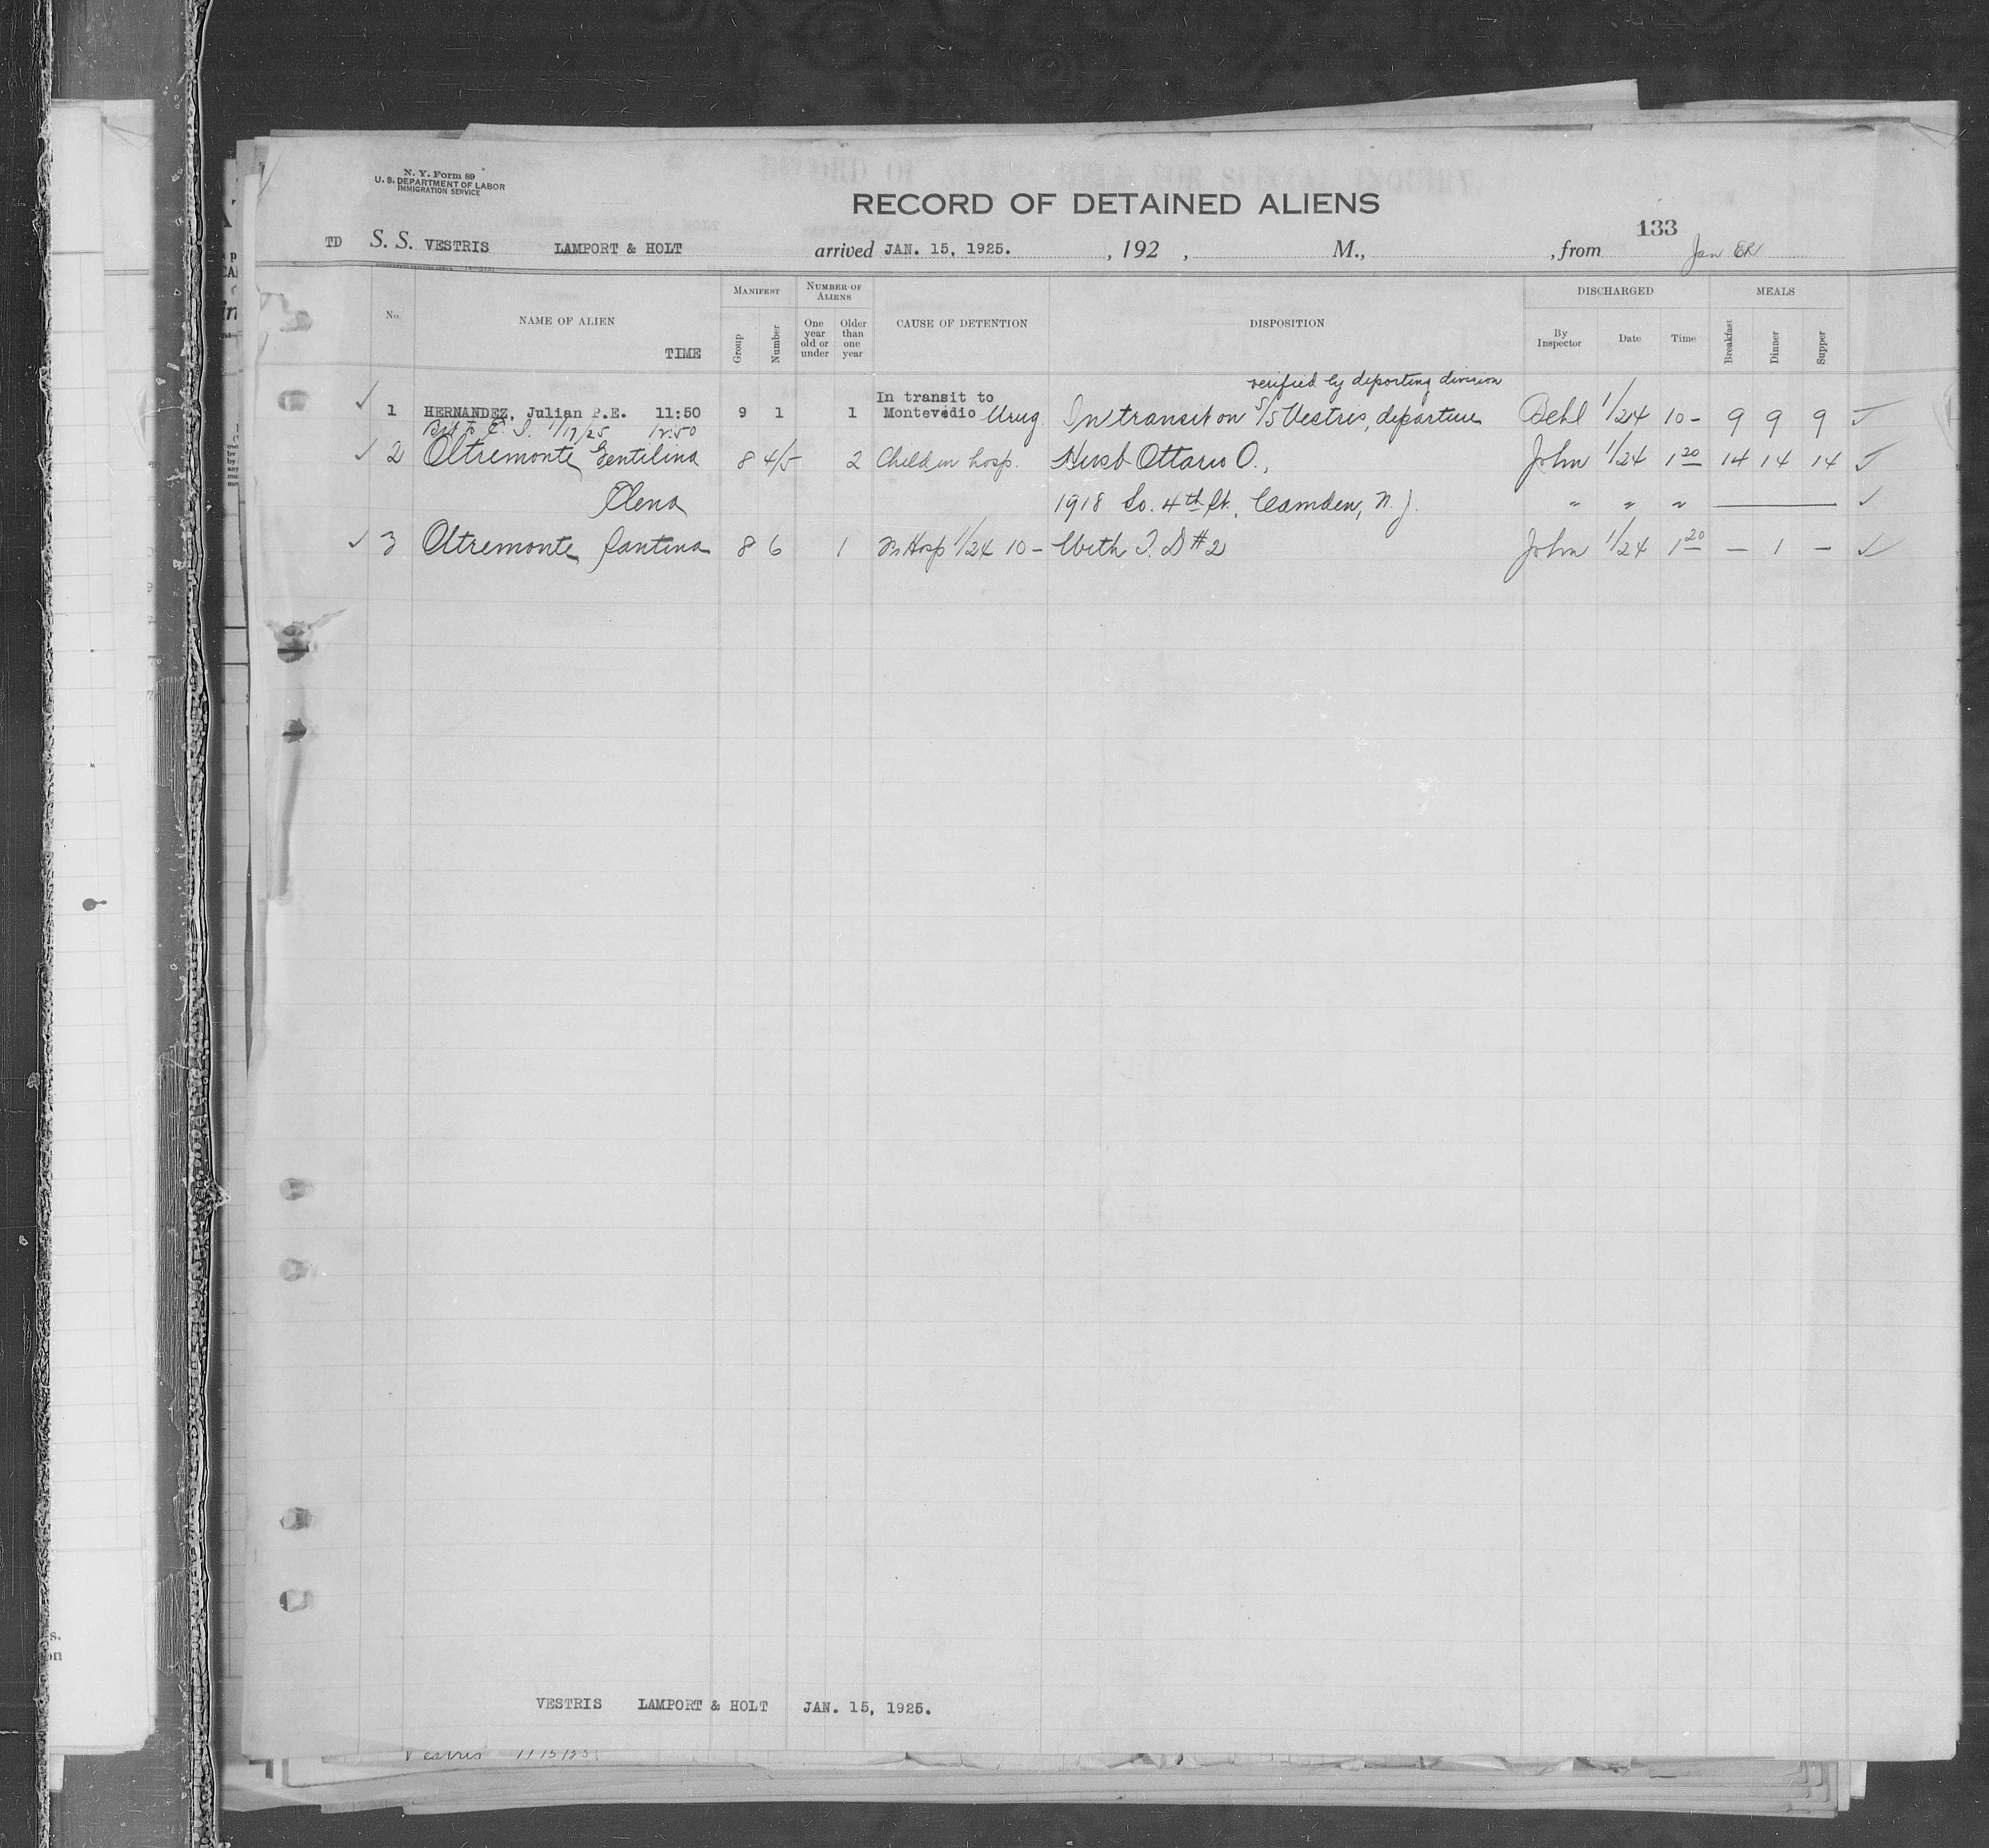 N. Y. Form 89
U. S. DEPARTMENT OF LABOR
IMMIGRATION SERVICE
RECORD OF DETAINED ALIENS
133
TD S. S. VESTRIS LAMPORT & HOLT arrived JAN. 15, 1925. , 192 , M., , from Jan
No. NAME OF ALIEN TIME MANIFEST Group Number NUMBER OF ALIENS One year old or under Older than one year CAUSE OF DETENTION DISPOSITION DISCHARGED By Inspector Date Time MEALS Breakfast Dinner Supper
verified by deporting division
In transit to
✓ 1 HERNANDEZ, Julian P.E. 11:50 9 1 1 Montevedio Urug. In transit on S/S Vestris, departure Behl 1/24 10- 9 9 9 ✓
1/17/25 12:50
✓ 2 Oltremonte Gentilina 8 4/5 2 Child in hosp. Husb Ottario O., John 1/24 1 20 14 14 14 ✓
Elena 1918 So. 4th St., Camden, N. J. " " " — ✓
✓ 3 Oltremonte Santina 8 6 1 Hosp 1/24 10- With T. D #2 John 1/24 1 20 - 1 - ✓
VESTRIS LAMPORT & HOLT JAN. 15, 1925.
Vestris 1/15/25